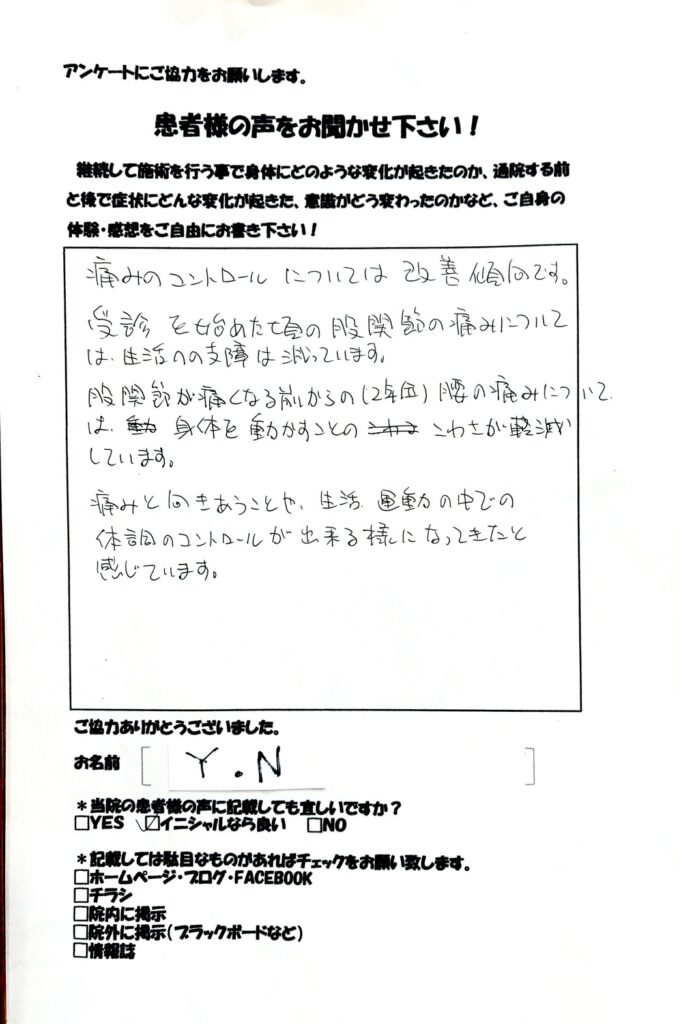 アンケートにご協力をお願いします。
患者様の声をお聞かせ下さい！
継続して施術を行う事で身体にどのような変化が起きたのか、通院する前
と後で症状にどんな変化が起きた、意識がどう変わったのかなど、ご自身の
体験・感想をご自由にお書き下さい！
痛みのコントロールについては改善傾向です。
受診を始めた頃の股関節の痛みについて
は、生活への支障は減っています。
股関節が痛くなる前からの(2年位)腰の痛みについて
は、身体を動かすことの こわさが軽減
しています。
痛みと向きあうことや、生活、運動の中での
体調のコントロールが出来る様になってきたと
感じています。
ご協力ありがとうございました。
お名前 [ Y.N ]
＊当院の患者様の声に記載しても宜しいですか？
□YES ☑イニシャルなら良い □NO
＊記載しては駄目なものがあればチェックをお願い致します。
□ホームページ・ブログ・FACEBOOK
□チラシ
□院内に掲示
□院外に掲示（ブラックボードなど）
□情報誌